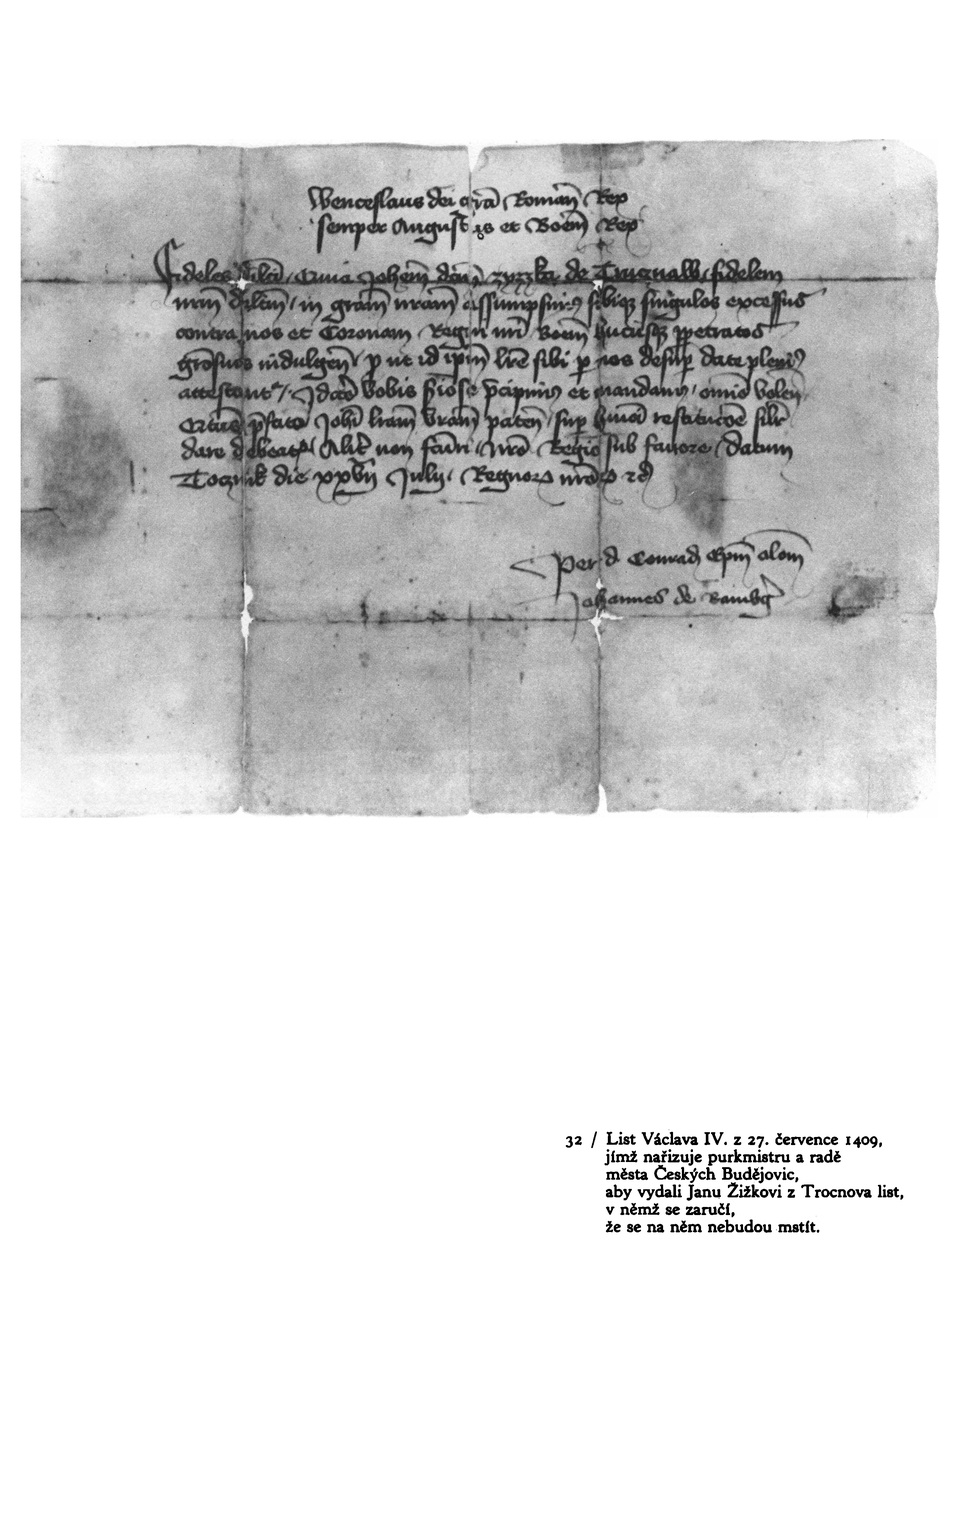 Wenceslaus dei gra Roman Rex
semper August et Boem Rex
Fideles dilecti Quia Johem dcm zyzzka de Trucznaw fidelem
nrm dilcm in gram nram assumpsimus sibique singulos excessus
contra nos et Coronam Regni nri Boem hucusque perpetratos
grosuos indulgen pro ut id ipm lre sibi per nos desuper date plenius
attestant Idcirco vobis seriose precipimus et mandamus omnio volen
prefato Johi lram vram paten super huiusmodi
dare debeatis Aliter non fcuri nro Regio sub fauore Datum
Tocznik die xxvij Julij Regnor nror
Per d Conrad Epm olom
Johannes de Bamberg
32 / List Václava IV. z 27. července 1409,
jímž nařizuje purkmistru a radě
města Českých Budějovic,
aby vydali Janu Žižkovi z Trocnova list,
v němž se zaručí,
že se na něm nebudou mstít.